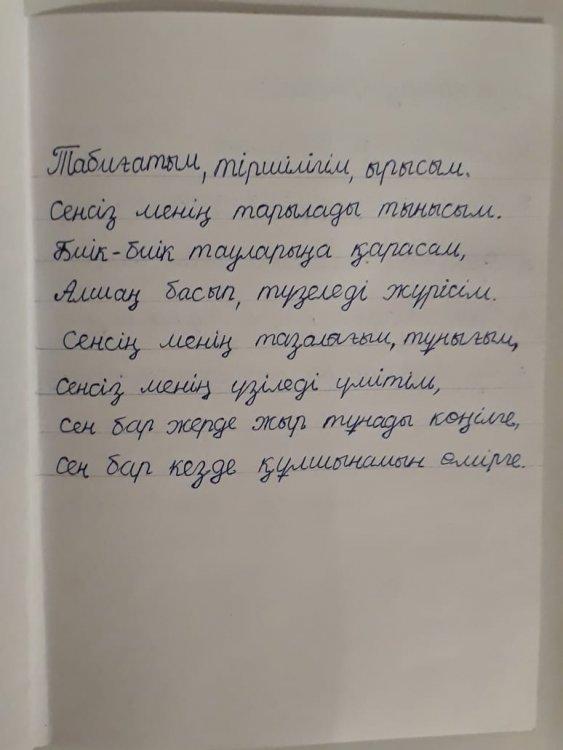 Табиғатым, тіршілігім, ырысым.
Сенсіз менің тарылады тынысым.
Биік-биік тауларыңа қарасам,
Алшаң басып, түзеледі жүрісім.
Сенсің менің тазалығым, тұнығым,
Сенсіз менің үзіледі үмітім,
Сен бар жерде жыр тұнады көңілге,
Сен бар кезде құлшынамын өмірге.